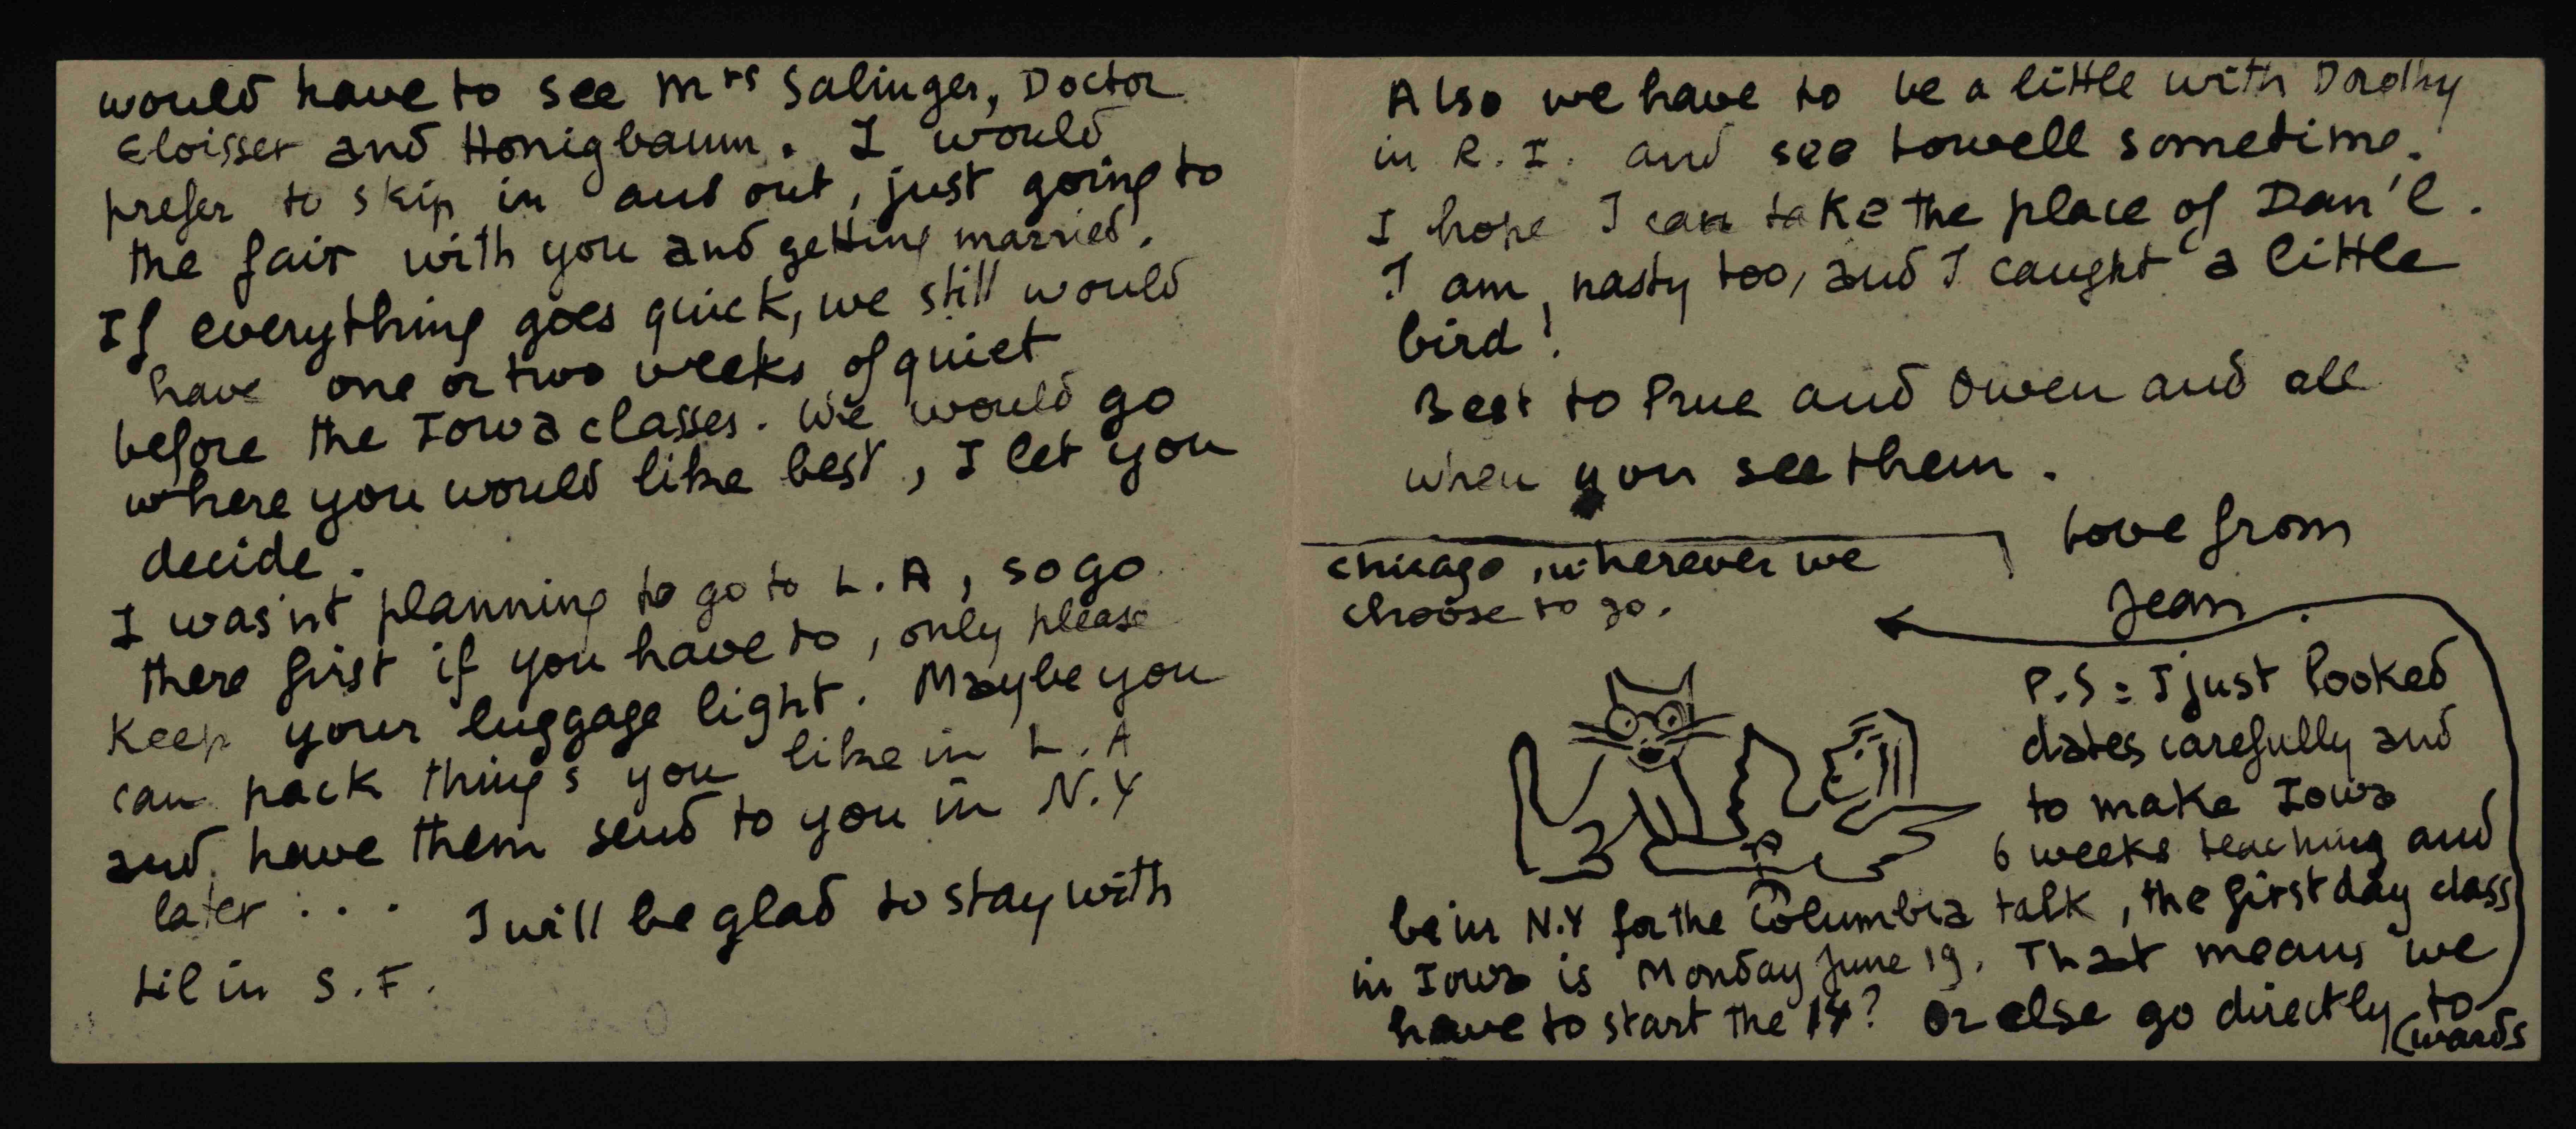 would have to see Mrs Salinger, Doctor
Eloisser and Honigbaum. I would
prefer to skip in and out, just going to
the fair with you and getting married.
If everything goes quick, we still would
have one or two weeks of quiet
before the Iowa classes. We would go
where you would like best, I let you
decide.
I was'nt planning to go to L.A, so go
there first if you have to, only please
keep your luggage light. Maybe you
can pack things you like in L.A
and have them send to you in N.Y
later . . .
I will be glad to stay with
Lil in S.F.
Also we have to be a little with Dorothy
in R.I. and see Lowell sometime.
I hope I can take the place of Dan'l.
I am nasty too, and I caught a little
bird!
Best to Prue and Owen and all
when you see them.
Love from
Jean.
P.S: I just looked
dates carefully and
to make Iowa
6 weeks teaching and
be in N.Y for the Columbia talk, the first day class
in Iowa is Monday June 19. That means we
have to start the 14? Or else go directly to
(wards
chicago, wherever we
choose to go.